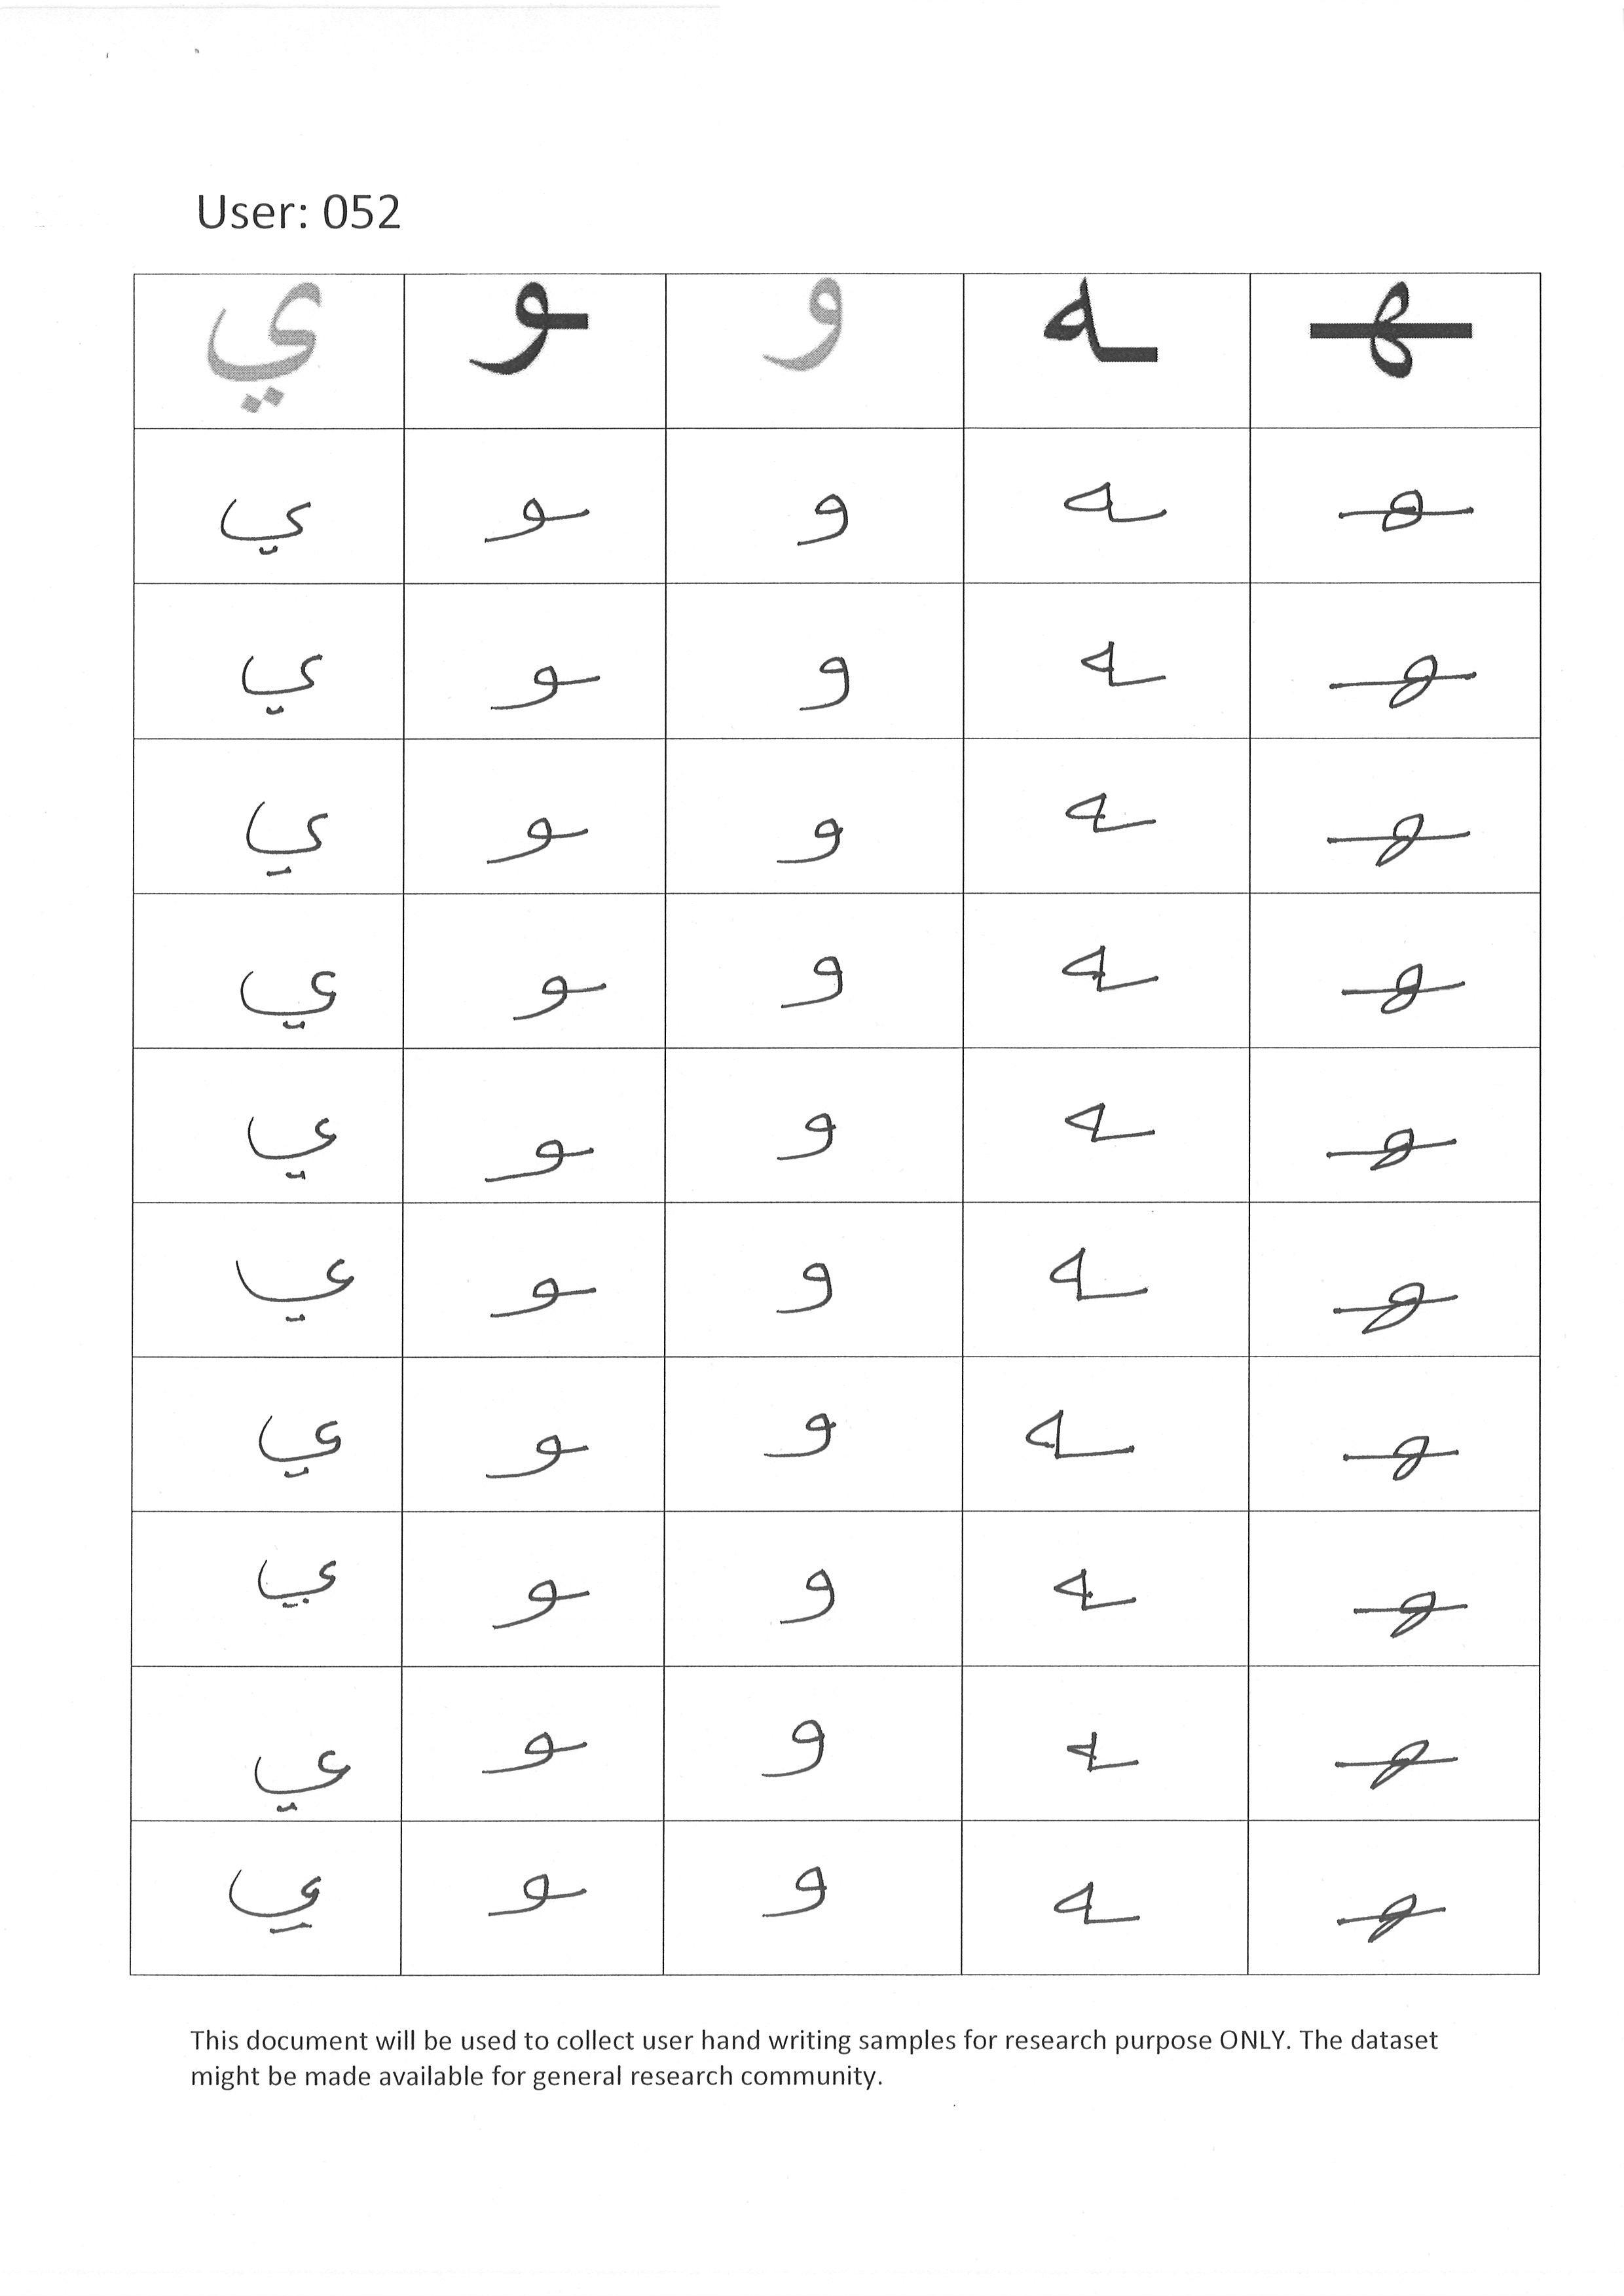 User: 052
ي ـو و ـه ـهـ
ي ـو و ـه ـهـ
ي ـو و ـه ـهـ
ي ـو و ـه ـهـ
ي ـو و ـه ـهـ
ي ـو و ـه ـهـ
ي ـو و ـه ـهـ
ي ـو و ـه ـهـ
ي ـو و ـه ـهـ
ي ـو و ـه ـهـ
ي ـو و ـه ـهـ
This document will be used to collect user hand writing samples for research purpose ONLY. The dataset
might be made available for general research community.